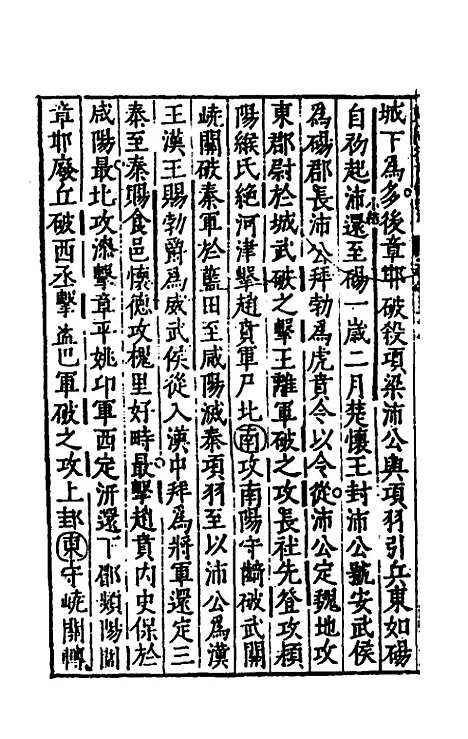 城下爲多後章邯破殺項梁沛公與項羽引兵東如碭
自初起沛還至碭一歲二月楚懷王封沛公號安武侯
爲碭郡長沛公拜勃爲虎賁令以令從沛公定魏地攻
東郡尉於城武破之擊王離軍破之攻長社先登攻潁
陽緱氏絕河津擊趙賁軍尸北南攻南陽守齮破武關
嶢關破秦軍於藍田至咸陽滅秦項羽至以沛公爲漢
王漢王賜勃爵爲威武侯從入漢中拜爲將軍還定三
秦至秦賜食邑懷德攻槐里好畤最擊趙賁內史保於
咸陽最北攻漆擊章平姚卬軍西定汧還下郿頻陽圍
章邯廢丘破西丞擊盗巴軍破之攻上邽東守嶢關轉